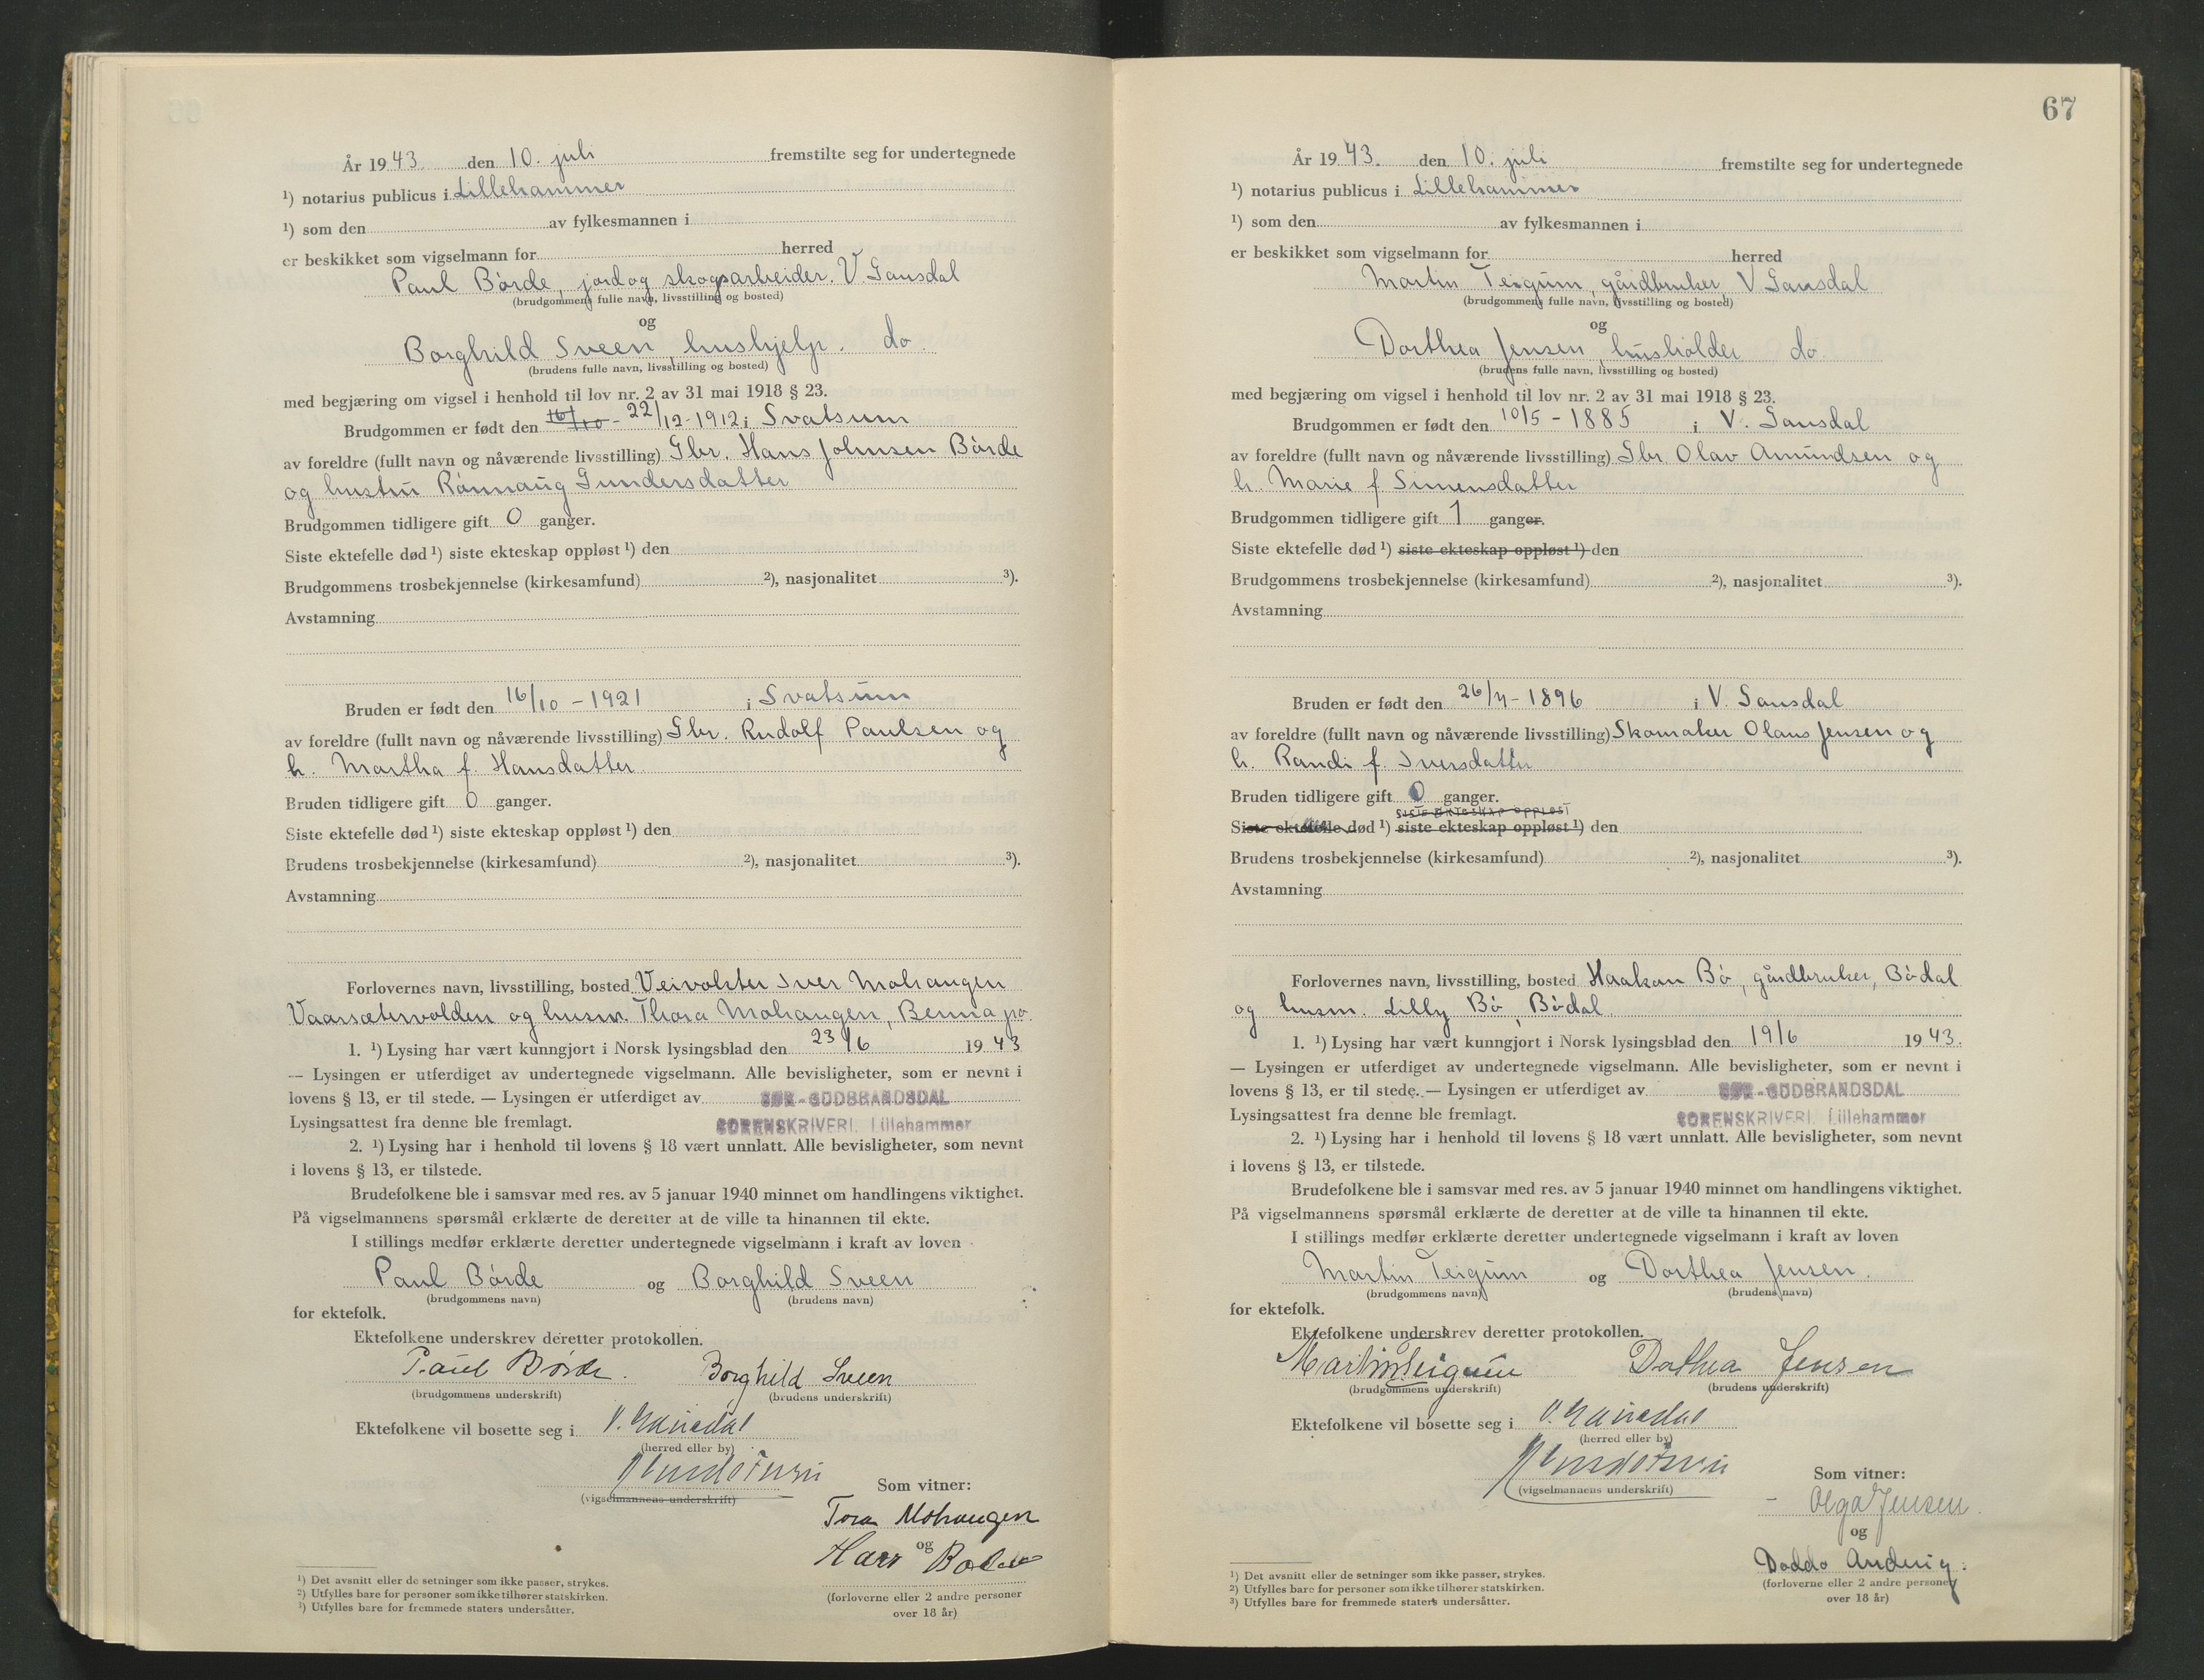 År 1943. den 10. juli fremstilte seg for undertegnede
¹) notarius publicus i Lillehammer
¹) som den av fylkesmannen i
er beskikket som vigselmann for herred
Paul Børde, jord og skogsarbeider. V. Gausdal
(brudgommens fulle navn, livsstilling og bosted)
og
Borghild Sveen, hushjelp. do.
(brudens fulle navn, livsstilling og bosted)
med begjæring om vigsel i henhold til lov nr. 2 av 31 mai 1918 § 23.
Brudgommen er født den 16/10 - 22/12-1912 i Svatsum
av foreldre (fullt navn og nåværende livsstilling) Gbr. Hans Johnsen Børde
og hustru Rønnaug Gundersdatter
Brudgommen tidligere gift 0 ganger.
Siste ektefelle død ¹) siste ekteskap oppløst ¹) den
Brudgommens trosbekjennelse (kirkesamfund) ²), nasjonalitet ³).
Avstamning
Bruden er født den 16/10 - 1921 i Svatsum
av foreldre (fullt navn og nåværende livsstilling) Gbr. Rudolf Paulsen og
h. Martha f. Hansdatter
Bruden tidligere gift 0 ganger.
Siste ektefelle død ¹) siste ekteskap oppløst ¹) den
Brudens trosbekjennelse (kirkesamfund) ²), nasjonalitet ³).
Avstamning
Forlovernes navn, livsstilling, bosted Veivokter Iver Mohaugen
Vaarsætervolden og husm. Thora Mohaugen, Benna po.
1. ¹) Lysing har vært kunngjort i Norsk lysingsblad den 23/6 1943
— Lysingen er utferdiget av undertegnede vigselmann. Alle bevisligheter, som er nevnt i
lovens § 13, er til stede. — Lysingen er utferdiget av SØR-GUDBRANDSDAL
Lysingsattest fra denne ble fremlagt. SORENSKRIVERI. Lillehammer
2. ¹) Lysing har i henhold til lovens § 18 vært unnlatt. Alle bevisligheter, som nevnt
i lovens § 13, er tilstede.
Brudefolkene ble i samsvar med res. av 5 januar 1940 minnet om handlingens viktighet.
På vigselmannens spørsmål erklærte de deretter at de ville ta hinannen til ekte.
I stillings medfør erklærte deretter undertegnede vigselmann i kraft av loven
Paul Børde og Borghild Sveen
(brudgommens navn) (brudens navn)
for ektefolk.
Ektefolkene underskrev deretter protokollen.
Paul Børde. Borghild Sveen
(brudgommens underskrift) (brudens underskrift)
Ektefolkene vil bosette seg i V. Gausdal
(herred eller by)
(vigselmannens underskrift)
Som vitner:
Tora Mohaugen
og
Hans
(forloverne eller 2 andre personer
over 18 år)
¹) Det avsnitt eller de setninger som ikke passer, strykes.
²) Utfylles bare for personer som ikke tilhører statskirken.
³) Utfylles bare for fremmede staters undersåtter.
67
År 1943. den 10. juli fremstilte seg for undertegnede
¹) notarius publicus i Lillehammer
¹) som den av fylkesmannen i
er beskikket som vigselmann for herred
Martin Teigum, gårdbruker, V Gausdal
(brudgommens fulle navn, livsstilling og bosted)
og
Dorthea Jensen, husholder do
(brudens fulle navn, livsstilling og bosted)
med begjæring om vigsel i henhold til lov nr. 2 av 31 mai 1918 § 23.
Brudgommen er født den 10/5 - 1885 i V. Gausdal
av foreldre (fullt navn og nåværende livsstilling) Gbr. Olav Amundsen og
h. Marie f Simensdatter
Brudgommen tidligere gift 1 ganger.
Siste ektefelle død ¹) siste ekteskap oppløst ¹) den
Brudgommens trosbekjennelse (kirkesamfund) ²), nasjonalitet ³).
Avstamning
Bruden er født den 26/4 - 1896 i V. Gausdal
av foreldre (fullt navn og nåværende livsstilling) Skomaker Olaus Jensen og
h. Randi f. Iversdatter
Bruden tidligere gift 0 ganger.
siste ekteskap oppløst
Siste ektefelle død ¹) siste ekteskap oppløst ¹) den
Brudens trosbekjennelse (kirkesamfund) ²), nasjonalitet ³).
Avstamning
Forlovernes navn, livsstilling, bosted Haakon Bø, gårdbruker, Bødal
og husm. Lilly Bø, Bødal.
1. ¹) Lysing har vært kunngjort i Norsk lysingsblad den 19/6 1943.
— Lysingen er utferdiget av undertegnede vigselmann. Alle bevisligheter, som er nevnt i
lovens § 13, er til stede. — Lysingen er utferdiget av SØR-GUDBRANDSDAL
Lysingsattest fra denne ble fremlagt. SORENSKRIVERI. Lillehammer
2. ¹) Lysing har i henhold til lovens § 18 vært unnlatt. Alle bevisligheter, som nevnt
i lovens § 13, er tilstede.
Brudefolkene ble i samsvar med res. av 5 januar 1940 minnet om handlingens viktighet.
På vigselmannens spørsmål erklærte de deretter at de ville ta hinannen til ekte.
I stillings medfør erklærte deretter undertegnede vigselmann i kraft av loven
Martin Teigum og Dorthea Jensen.
(brudgommens navn) (brudens navn)
for ektefolk.
Ektefolkene underskrev deretter protokollen.
Martin Teigum Dorthea Jensen
(brudgommens underskrift) (brudens underskrift)
Ektefolkene vil bosette seg i V. Gausdal
(herred eller by)
(vigselmannens underskrift)
Som vitner:
Olga Jensen.
og
Doddo
(forloverne eller 2 andre personer
over 18 år)
¹) Det avsnitt eller de setninger som ikke passer, strykes.
²) Utfylles bare for personer som ikke tilhører statskirken.
³) Utfylles bare for fremmede staters undersåtter.